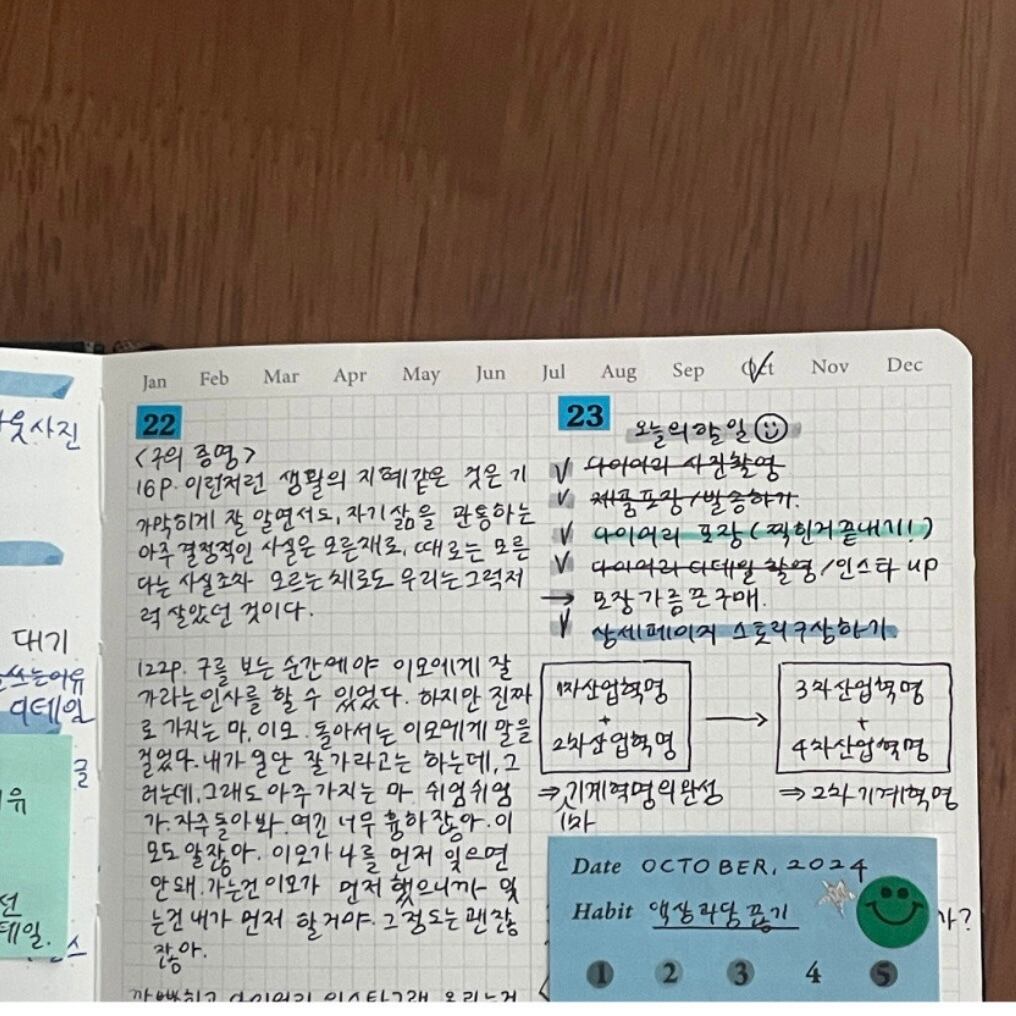 Jan Feb Mar Apr May Jun Jul Aug Sep Oct Nov Dec
사진
대기
쓰는이유
디테일
글
유
선
테일.
스
22
<구의 증명>
16P. 이런저런 생활의 지혜같은 것은 기
가막히게 잘 알면서도, 자기삶을 관통하는
아주 결정적인 사실은 모른채로, 때로는 모른
다는 사실조차 모르는 체로도 우리는 그럭저
럭 살았던 것이다.
122p. 구를 보는 순간에야 이모에게 잘
가라는 인사를 할 수 있었다. 하지만 진짜
로 가지는 마, 이모. 돌아서는 이모에게 말을
걸었다. 내가 일단 잘가라고는 하는데, 그
러는데, 그래도 아주 가지는 마. 쉬엄쉬엄
가. 자주 돌아봐. 여긴 너무 흉하잖아. 이
모도 알잖아. 이모가 나를 먼저 잊으면
안돼. 가는건 이모가 먼저 했으니까 잊
는건 내가 먼저 할거야. 그 정도는 괜찮
잖아.
다이어리 인스타그램 올리는거
23
오늘의 할 일
다이어리 사진촬영
제품포장/발송하기.
다이어리 포장 (찍힌거 끝내기!!)
다이어리 디테일 촬영/인스타 up
포장가름끈구매.
상세페이지 스토리구상하기
1차산업혁명
+
2차산업혁명
→
3차산업혁명
+
4차산업혁명
⇒ 기계혁명의 완성
1차
⇒ 2차기계혁명
Date OCTOBER, 2024
Habit 액상과당 끊기
가?
1 2 3 4 5